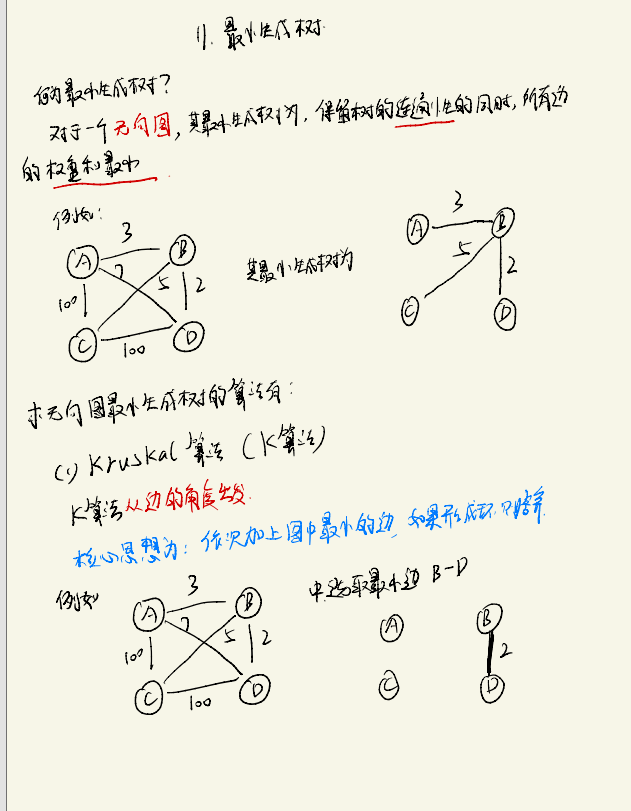 11. 最小生成树
何为最小生成树？
对于一个无向图，其最小生成树为，保留树的连通性的同时，所有边
的权重和最小
例如：
A 3 B
7
100 5 2
C 100 D
其最小生成树为
A 3 B
5 2
C D
求无向图最小生成树的算法有：
(1) Kruskal算法 (K算法)
K算法从边的角度出发
核心思想为：依次加上图中最小的边，如果形成环
例如
A 3 B
7
100 5 2
C 100 D
中选取最小边 B-D
A B
2
C D